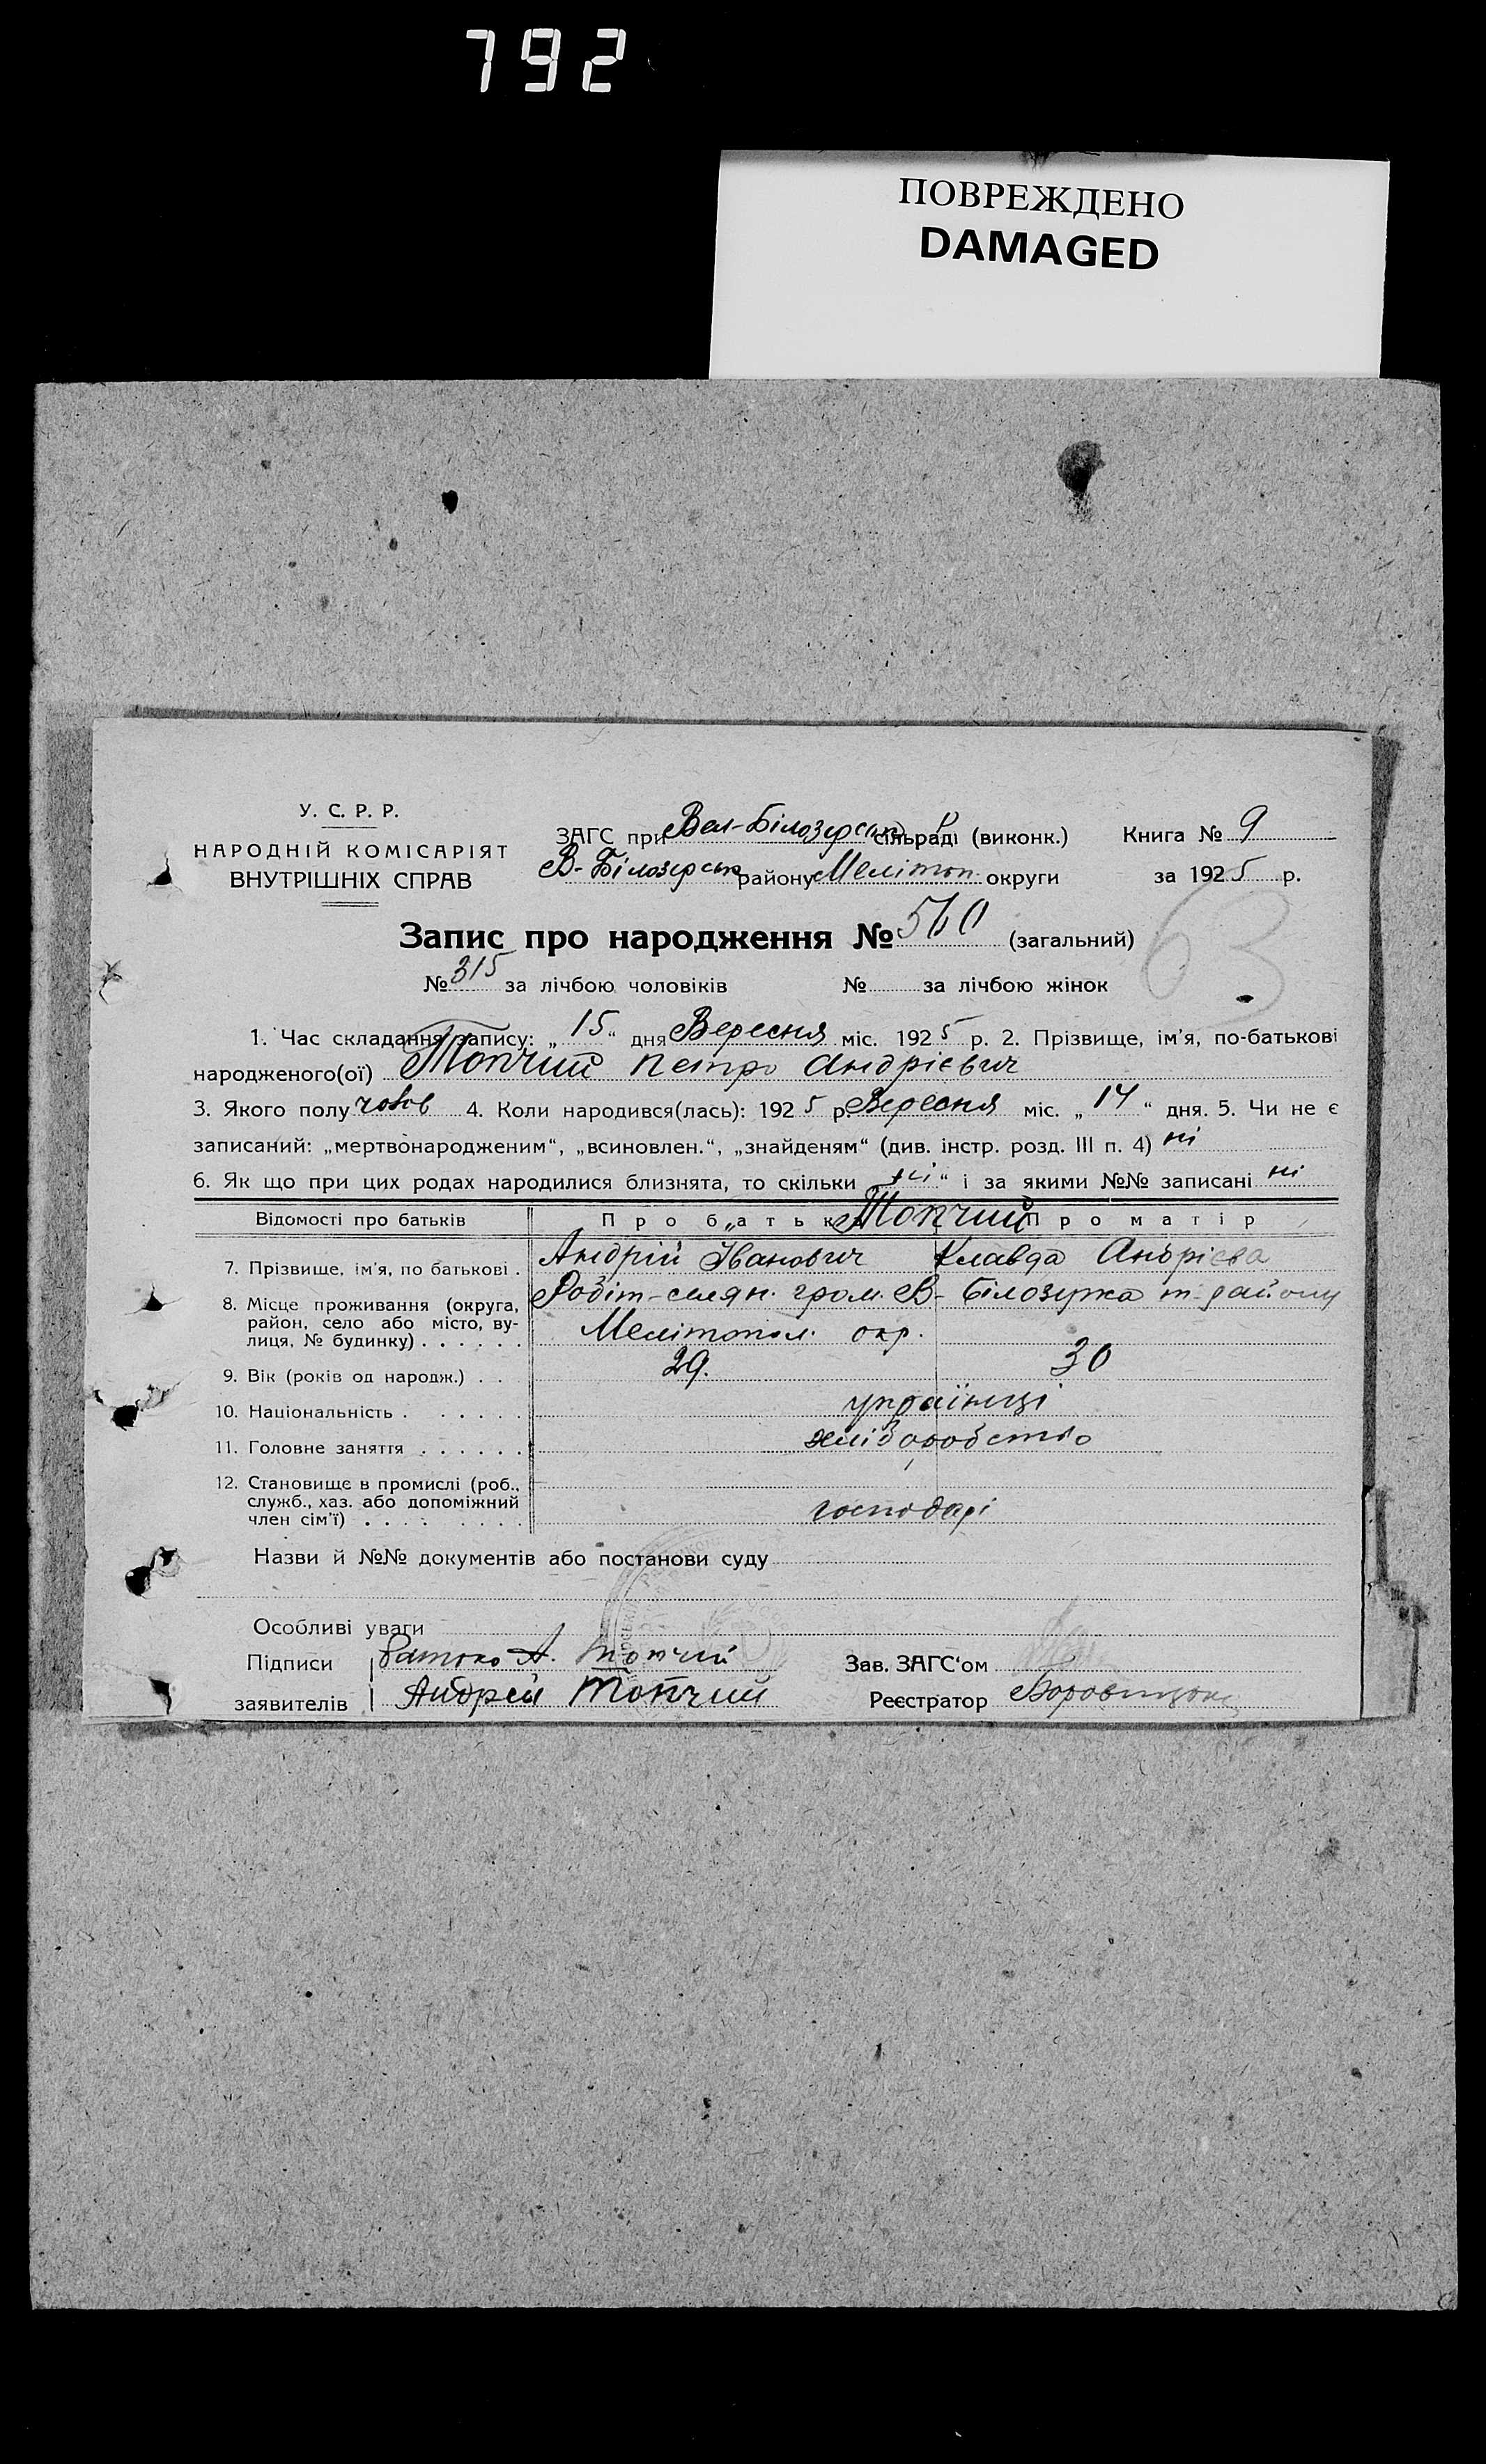 792
ПОВРЕЖДЕНО
DAMAGED
У. С. Р. Р.
НАРОДНІЙ КОМІСАРІЯТ
ВНУТРІШНІХ СПРАВ
ЗАГС при Вел-Білозерськ сільраді (виконк.) Книга № 9
В-Білозерськ району Мелітоп. округи за 1925 р.
Запис про народження № 560 (загальний)
63
№ 315 за лічбою чоловіків № за лічбою жінок
1. Час складання запису: „15“ дня Вересня міс. 1925 р. 2. Прізвище, ім'я, по-батькові
народженого(ої) Топчий Петро Андрієвич
3. Якого полу чолов 4. Коли народився(лась): 1925 р. Вересня міс. „14“ дня. 5. Чи не є
записаний: „мертвонародженим“, „всиновлен.“, „знайденям“ (див. інстр. розд. III п. 4) ні
6. Як що при цих родах народилися близнята, то скільки „ні“ і за якими №№ записані ні
Відомості про батьків Про батька Топчий Про матір
7. Прізвище, ім'я, по батькові . Андрій Іванович Клавда Андрієва
8. Місце проживання (округа, Робіт-селян. гром. В-Білозерка т-району
район, село або місто, ву-
лиця, № будинку) . . . . . . Мелітопол. окр.
9. Вік (років од народж.) . . 29. 30
10. Національність . . . . . . українці
11. Головне заняття . . . . . . хліборобство
12. Становище в промислі (роб.,
служб., хаз. або допоміжний
член сім'ї) . . . . . . . . господарі
Назви й №№ документів або постанови суду
Особливі уваги
Підписи Батько А. Топчий Зав. ЗАГС‘ом
заявителів Андрей Топчий Реєстратор